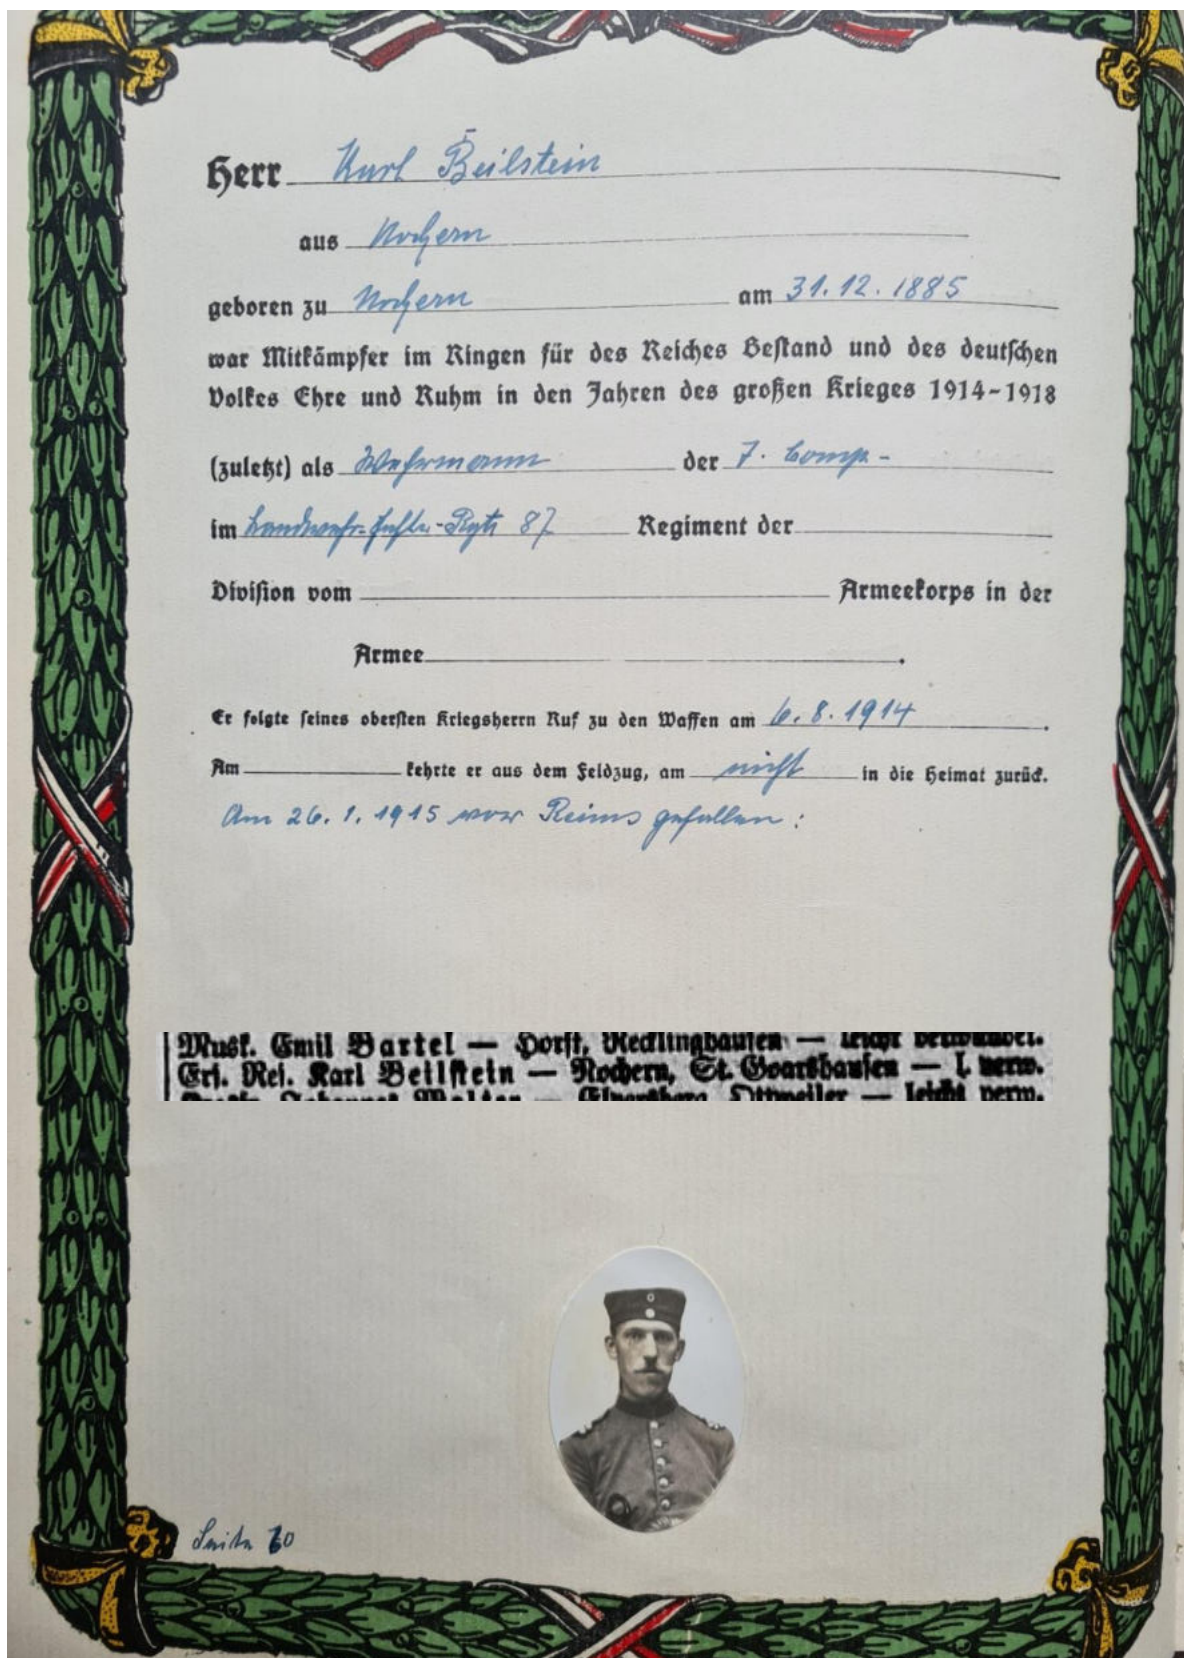 Herr Karl Beilstein
aus Nochern
geboren zu Nochern am 31.12.1885
war Mitkämpfer im Ringen für des Reiches Bestand und des deutschen
Volkes Ehre und Ruhm in den Jahren des großen Krieges 1914-1918
(zuletzt) als Wehrmann der 7. Comp.
im Landwehr-Inftr.-Rgt. 87 Regiment der
Division vom Armeekorps in der
Armee.
Er folgte seines obersten Kriegsherrn Ruf zu den Waffen am 6.8.1914.
Am kehrte er aus dem Feldzug, am nicht in die Heimat zurück.
Am 26.1.1915 vor Reims gefallen:
Musk. Emil Bartel — Horst, Recklinghausen — leicht verwundet.
Ers. Res. Karl Beilstein — Nochern, St. Goarshausen — l. verw.
Ottweiler — leicht verw.
Seite